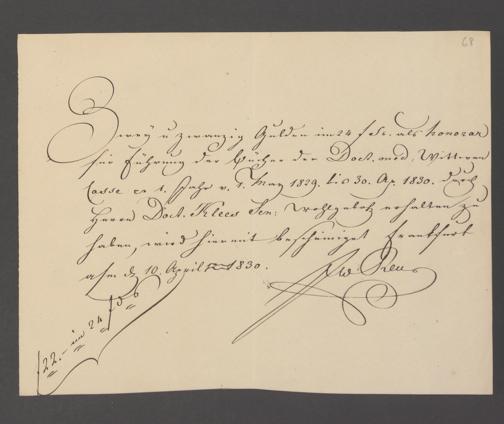 68
Zwey u zwanzig Gulden im 24 f als honorar
für Führung der Bücher der Doct. med: Wittwen
Casse 1. Jahr v. 1. May 1829. bis 30. Ap. 1830. durch
Herrn Doct. Klees Sen: Wohlgeb. erhalten zu
haben, wird hiermit bescheiniget Frankfurt
10. April 1830.
f 22.- im 24 f